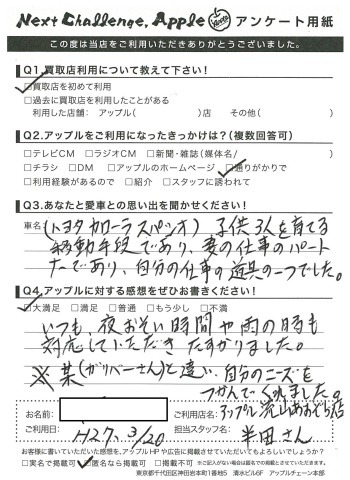 Next Challenge, Apple アンケート用紙
この度は当店をご利用いただきありがとうございました。
Q1.買取店利用について教えて下さい!
□買取店を初めて利用
□過去に買取店を利用したことがある
利用した店舗: アップル( )店 その他( )
Q2.アップルをご利用になったきっかけは?(複数回答可)
□テレビCM □ラジオCM □新聞・雑誌(媒体名/ )
□チラシ □DM □アップルのホームページ □通りがかりで
□利用経験があるので □紹介 □スタッフに誘われて
Q3.あなたと愛車との思い出を聞かせください!
車名(トヨタ カローラスパシオ) 子供3人を育てる
移動手段であり、妻の仕事のパート
たであり、自分の仕事の道具の一つでした。
Q4.アップルに対する感想をぜひお書きください!
□大満足 □満足 □普通 □もう少し □不満
いつも、夜おそい時間や雨の時も
対応していただきたすかりました。
※某(ガリバーさん)と違い、自分のニーズを
つかんでくれました。
お名前: ご利用店名: アップル 流山おおたか店
ご利用日: H27.3/20 担当スタッフ名: 半田さん
お客様に書いていただいた感想を、アップルHPや広告に掲載させていただいてもよろしいでしょうか?
□実名で掲載可 □匿名なら掲載可 □掲載不可 ※ご記入がない場合は匿名での掲載とさせていただきます。
東京都千代田区神田岩本町1番地5 清水ビル6F アップルチェーン本部